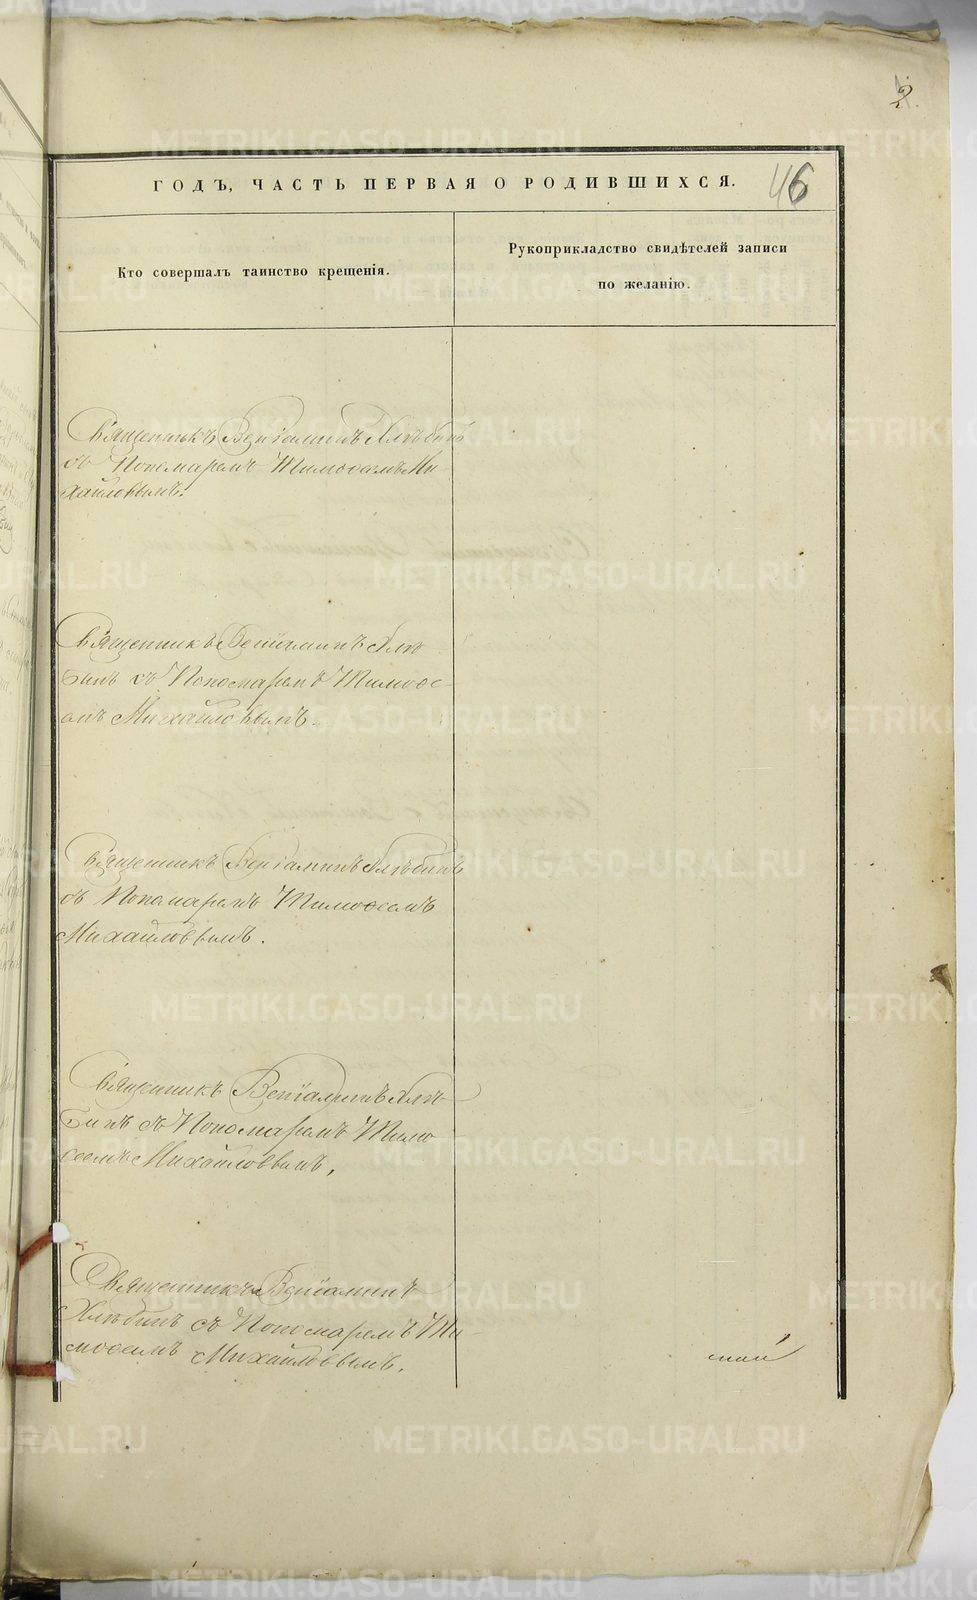 2.
ГОДЪ, ЧАСТЬ ПЕРВАЯ О РОДИВШИХСЯ.
46
Кто совершалъ таинство крещенія.
Рукоприкладство свидѣтелей записи
по желанію.
Священникъ Веніаминъ Хлѣбинъ
съ Пономаремъ Тимоѳеемъ Ми-
хайловымъ.
Священникъ Веніаминъ Хлѣ-
бинъ съ Пономаремъ Тимоѳе-
емъ Михайловымъ.
Священникъ Веніаминъ Хлѣбинъ
съ Пономаремъ Тимоѳеемъ
Михайловымъ.
Священникъ Веніаминъ Хлѣ-
бинъ съ Пономаремъ Тимо
ѳеемъ Михайловымъ.
Священникъ Веніаминъ
Хлѣбинъ съ Пономаремъ Ти-
моѳеемъ Михайловымъ.
METRIKI.GASO-URAL.RU